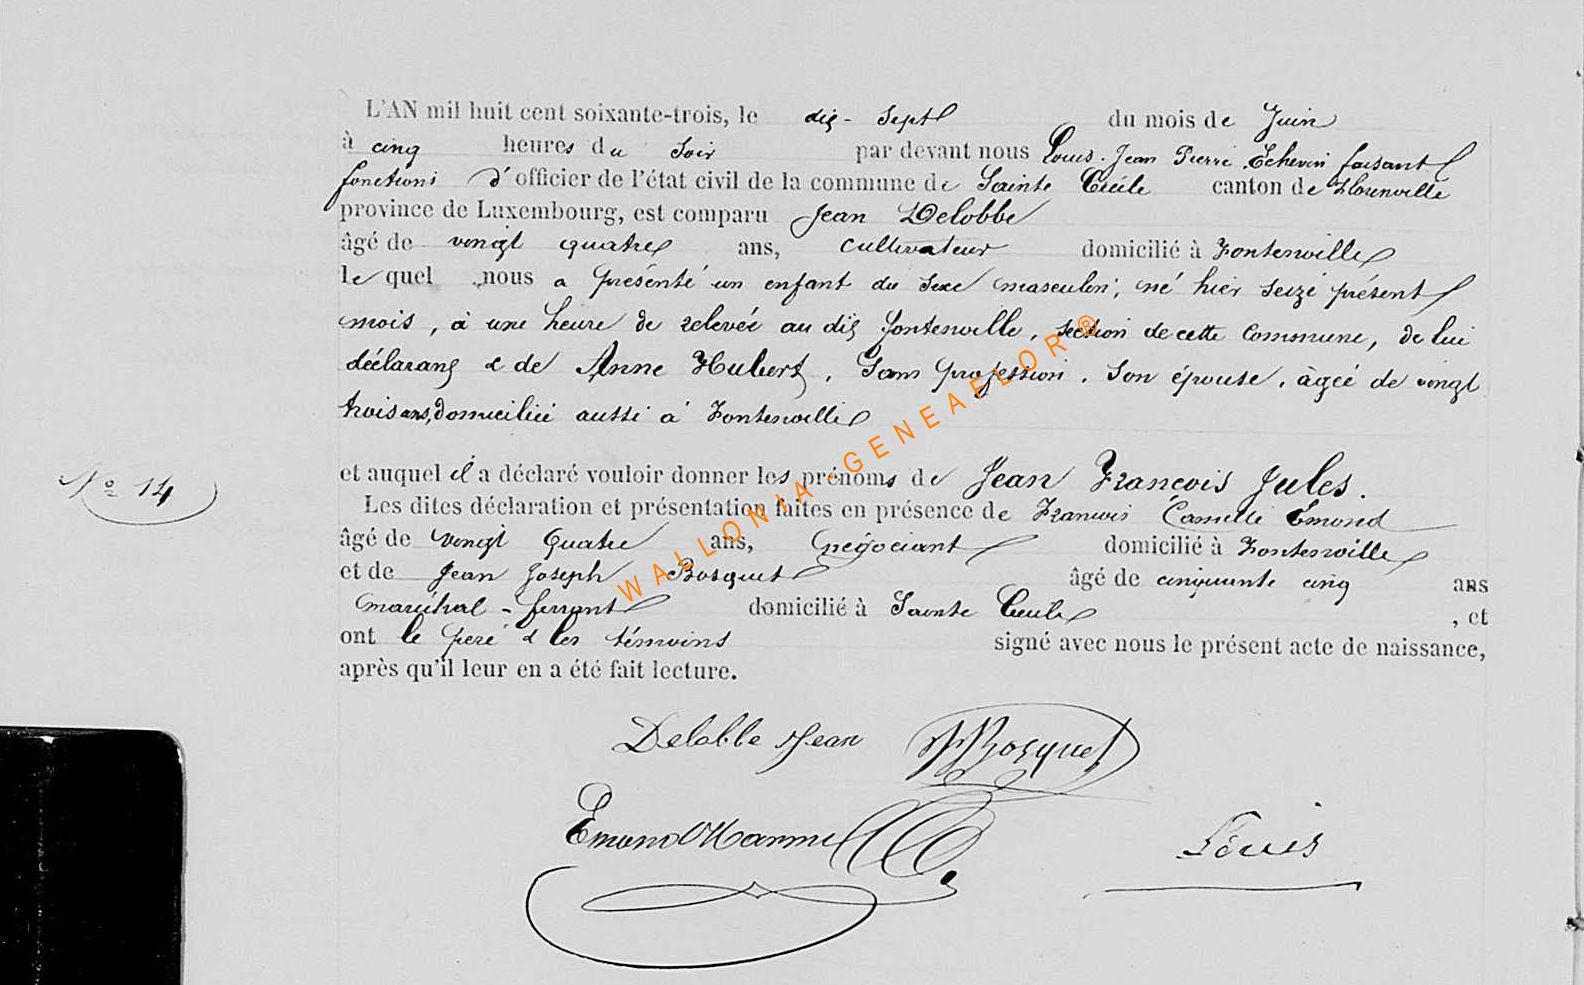 L'AN mil huit cent soixante-trois, le dix-sept du mois de Juin
à cinq heures du soir par devant nous Louis Jean Pierre Echevin faisant
fonctions d'officier de l'état civil de la commune de Sainte Cécile canton de Florenville
province de Luxembourg, est comparu Jean Delobbe
âgé de vingt quatre ans, cultivateur domicilié à Fontenoille
lequel nous a présenté un enfant du sexe masculin, né hier seize présent
mois, à une heure de relevée au dit fontenoille, section de cette commune, de lui
déclarant & de Anne Hubert, Sans profession, Son épouse, âgée de vingt
trois ans, domiciliée aussi à Fontenoille
N° 14
et auquel il a déclaré vouloir donner les prénoms de Jean François Jules.
Les dites déclaration et présentation faites en présence de François Camille Emond
âgé de vingt quatre ans, négociant domicilié à Fontenoille
et de Jean Joseph Bosquet âgé de cinquante cinq ans
maréchal-ferrant domicilié à Sainte Cécile, et
ont le père & les témoins signé avec nous le présent acte de naissance,
après qu'il leur en a été fait lecture.
Delobbe Jean Bosquet
Emond Louis
WALLONIA-GENEAFLOR®